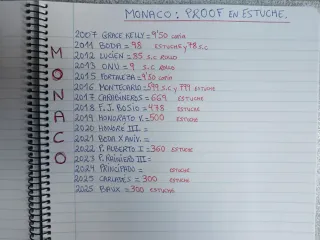 MONACO: PROOF EN ESTUCHE.
MONACO
2007 GRACE KELLY = 9'50
2011 BODA = 98 ESTUCHE y 98 S.C
2012 LUCIEN = 85 S.C ROLLO
2013 ONU = 9 S.C ROLLO
2015 FORTALEZA = 9'50
2016 MONTECARLO = 599 S.C y 799 ESTUCHE
2017 CARABINEROS = 669 ESTUCHE
2018 F.J. BOSIO = 478 ESTUCHE
2019 HONORATO V. = 500 ESTUCHE
2020 HONORE III =
2021 BODA X ANIV. =
2022 P. ALBERTO I = 360 ESTUCHE
2023 P. RAINIERO III =
2024 PRINCIPADO = ESTUCHE
2025 CARLADÉS = 300 ESTUCHE
2025 BAUX = 300 ESTUCHE